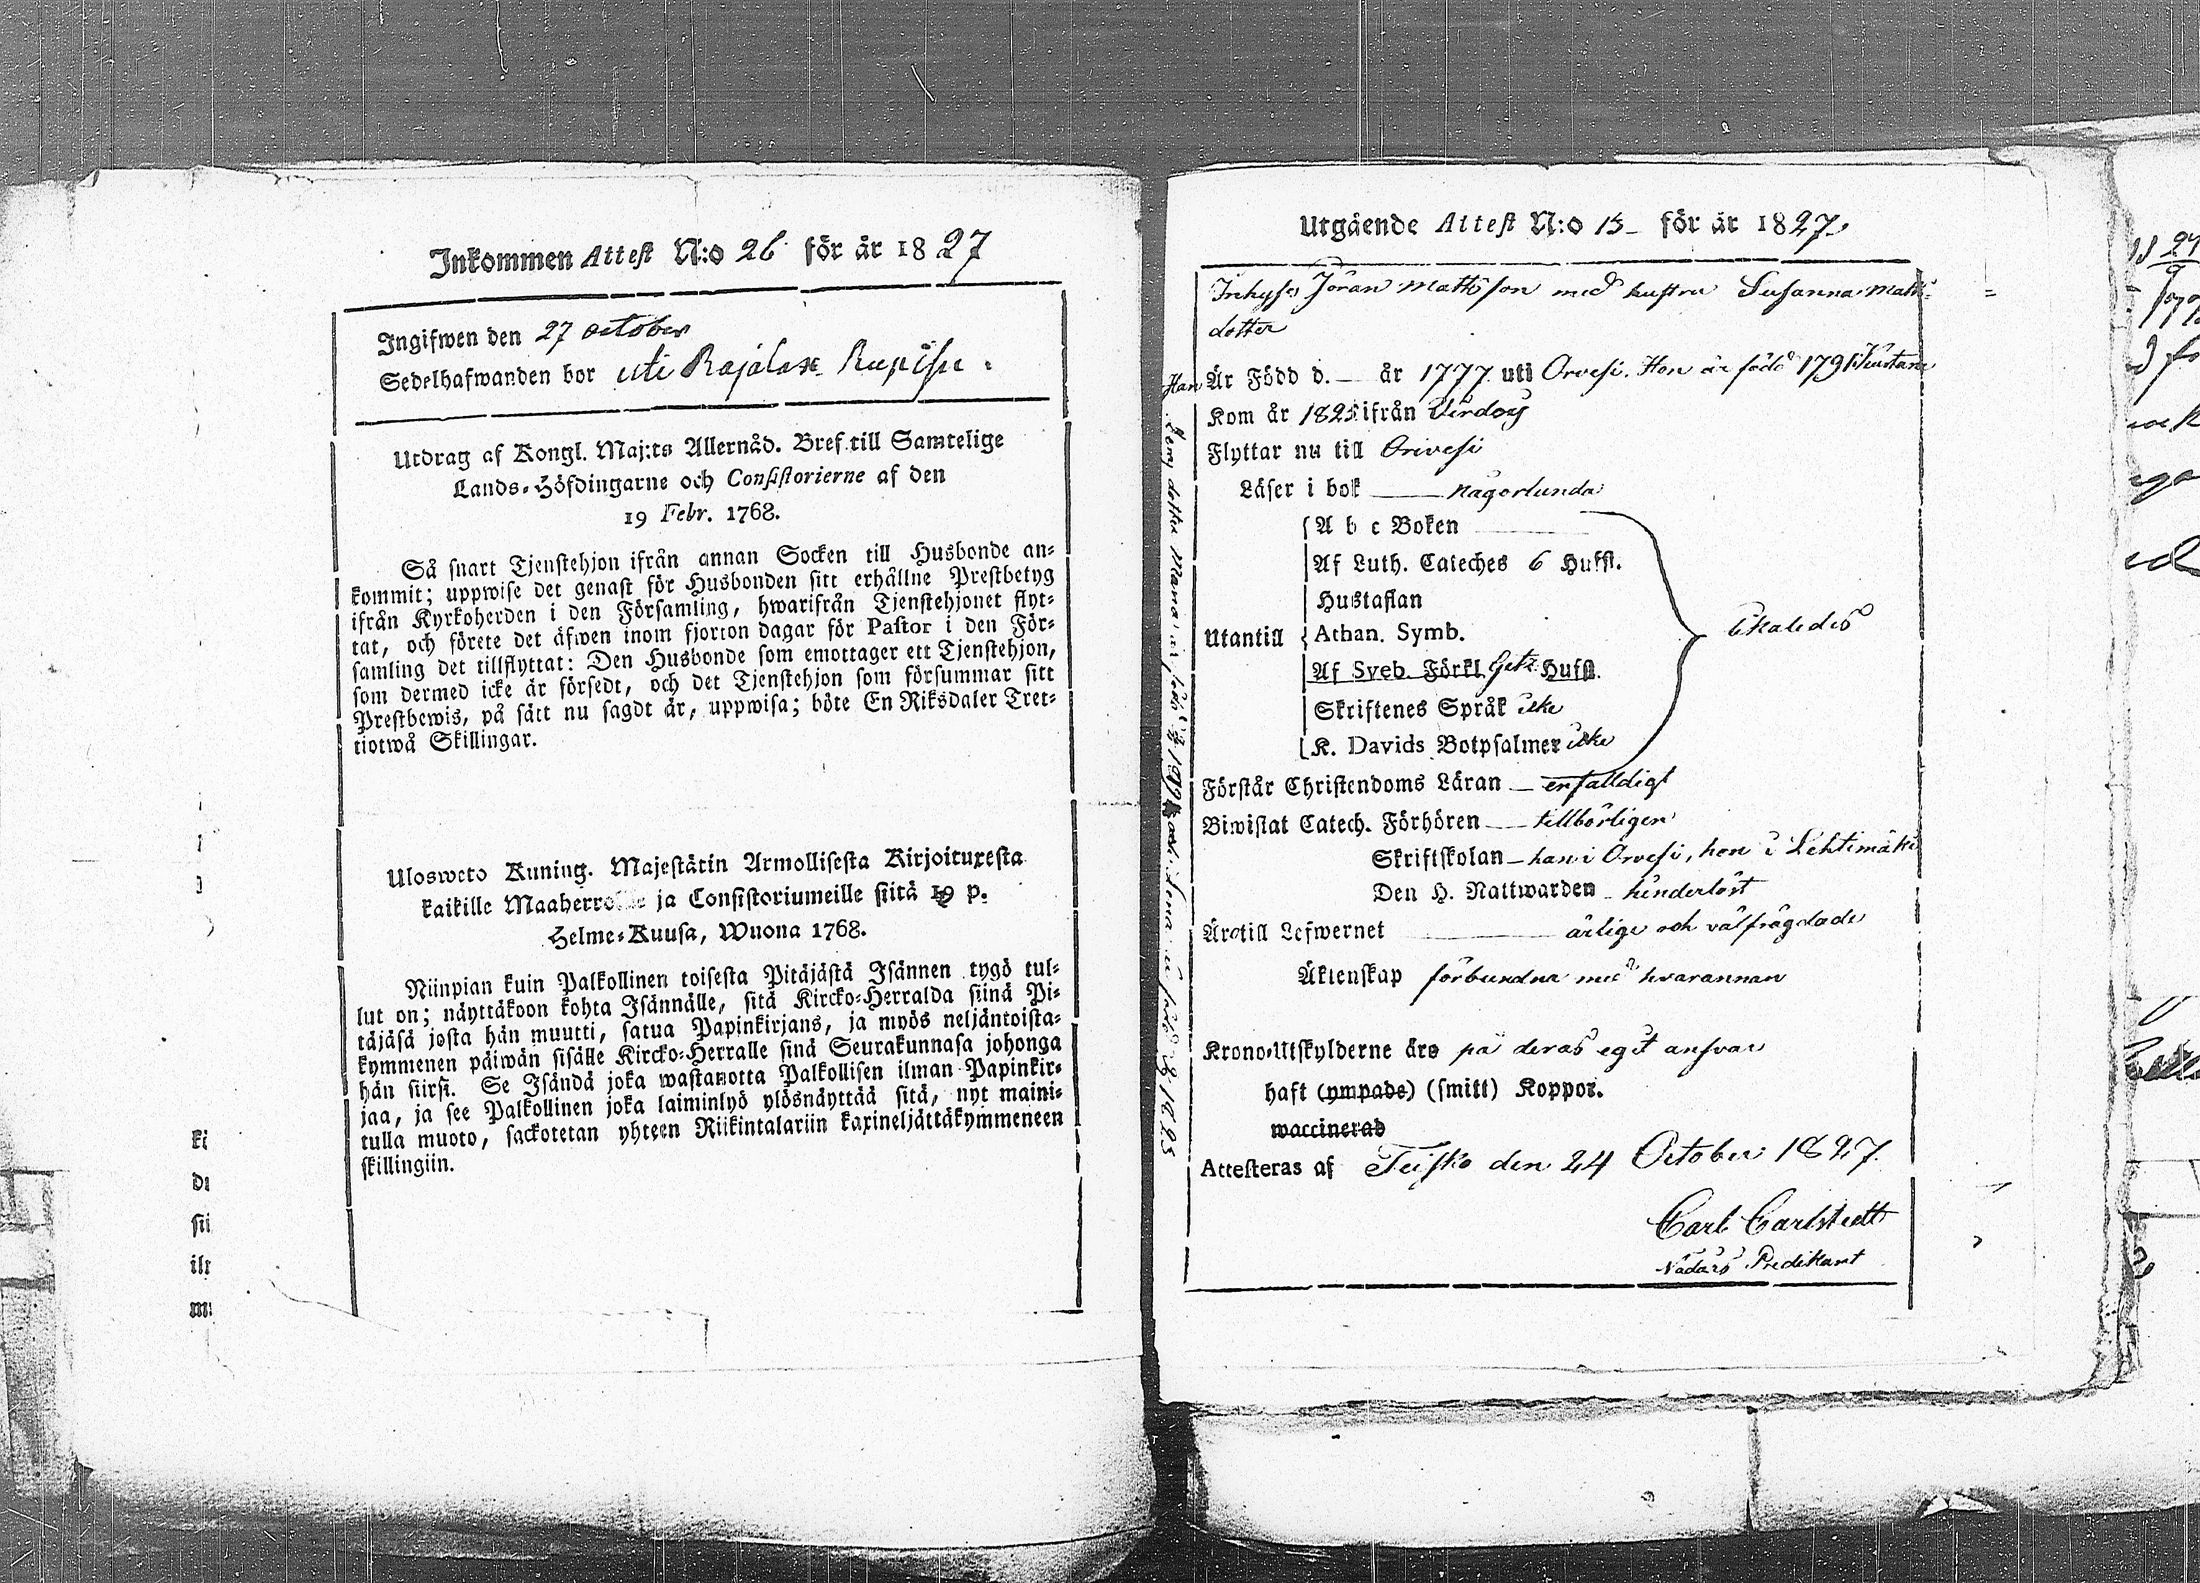 Inkommen Attest N:o 26 för år 1827
Ingifwen den 27 october
Sedelhafwanden bor uti Rajalax
Utdrag af Kongl. Maj:ts Allernåd. Bref till Samtelige
Lands-Höfdingarne och Consistorierne af den
19 Febr. 1768.
Så snart Tjenstehjon ifrån annan Socken till Husbonde an-
kommit; uppwise det genast för Husbonden sitt erhållne Prestbetyg
ifrån Kyrkoherden i den Församling, hwarifrån Tjenstehjonet flyt-
tat, och förete det äfwen inom fjorton dagar för Pastor i den För-
samling det tillflyttat: Den Husbonde som emottager ett Tjenstehjon,
som dermed icke är försedt, och det Tjenstehjon som försummar sitt
Prestbewis, på sätt nu sagdt är, uppwisa; böte En Riksdaler Tret-
tiotwå Skillingar.
Ulosweto Kuning. Majestätin Armollisesta Kirjoituxesta
kaikille Maaherro ja Consistoriumeille siitä 19 p.
Helme-Kuusa, Wuona 1768.
Niinpian kuin Palkollinen toisesta Pitäjästä Isännen tygö tul-
lut on; näyttäkoon kohta Isännälle, sitä Kircko-Herralda siinä Pi-
täjäsä josta hän muutti, satua Papinkirjans, ja myös neljäntoista-
kymmenen päiwän sisälle Kircko-Herralle sinä Seurakunnasa johonga
hän siirsi. Se Isändä joka wastanotta Palkollisen ilman Papinkir-
jaa, ja see Palkollinen joka laiminlyö ylösnäyttää sitä, nyt maini-
tulla muoto, sackotetan yhteen Riikintalariin kaxineljättäkymmeneen
skillingiin.
ki
di
sii
ilr
Utgående Attest N:o 15 för år 1827
Inhyses Jöran Mattsson med hustru Susanna Matts-
dotter
Han Är Född d. — år 1777 uti Orvesi. Hon är född 1791
Kom år 1825 ifrån Virdois
Flyttar nu till Orivesi
Läser i bok någorlunda
A b c Boken
Af Luth. Cateches 6 Hufst.
Hustaflan
Utantill Athan. Symb.
Af Sveb. Förkl. Hufst.
Skriftenes Språk icke
K. Davids Botpsalmer icke
Förstår Christendoms Läran — enfalldigt
Biwistat Catech. Förhören — tillbörligen
Skriftskolan — han i Orvesi, hon i Lehtimäki
Den H. Nattwarden — hinderlöst
Äro till Lefwernet ärlige och välfrägdade
Äktenskap förbundna med hvarannan
Krono-Utskylderne äro på deras eget ansvar
haft (ympade) (smitt) Koppor.
waccinerad
Attesteras af Teisko den 24 October 1827.
Carl Carlstedt
Nådårs Predikant